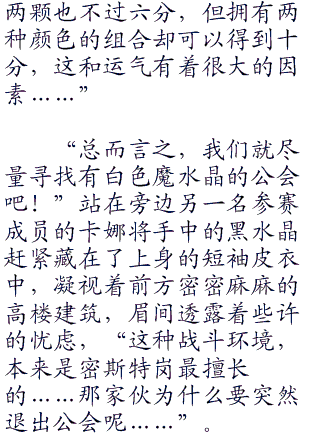 两颗也不过六分，但拥有两
种颜色的组合却可以得到十
分，这和运气有着很大的因
素……”
“总而言之，我们就尽
量寻找有白色魔水晶的公会
吧！”站在旁边另一名参赛
成员的卡娜将手中的黑水晶
赶紧藏在了上身的短袖皮衣
中，凝视着前方密密麻麻的
高楼建筑，眉间透露着些许
的忧虑，“这种战斗环境，
本来是密斯特岗最擅长
的……那家伙为什么要突然
退出公会呢……”。